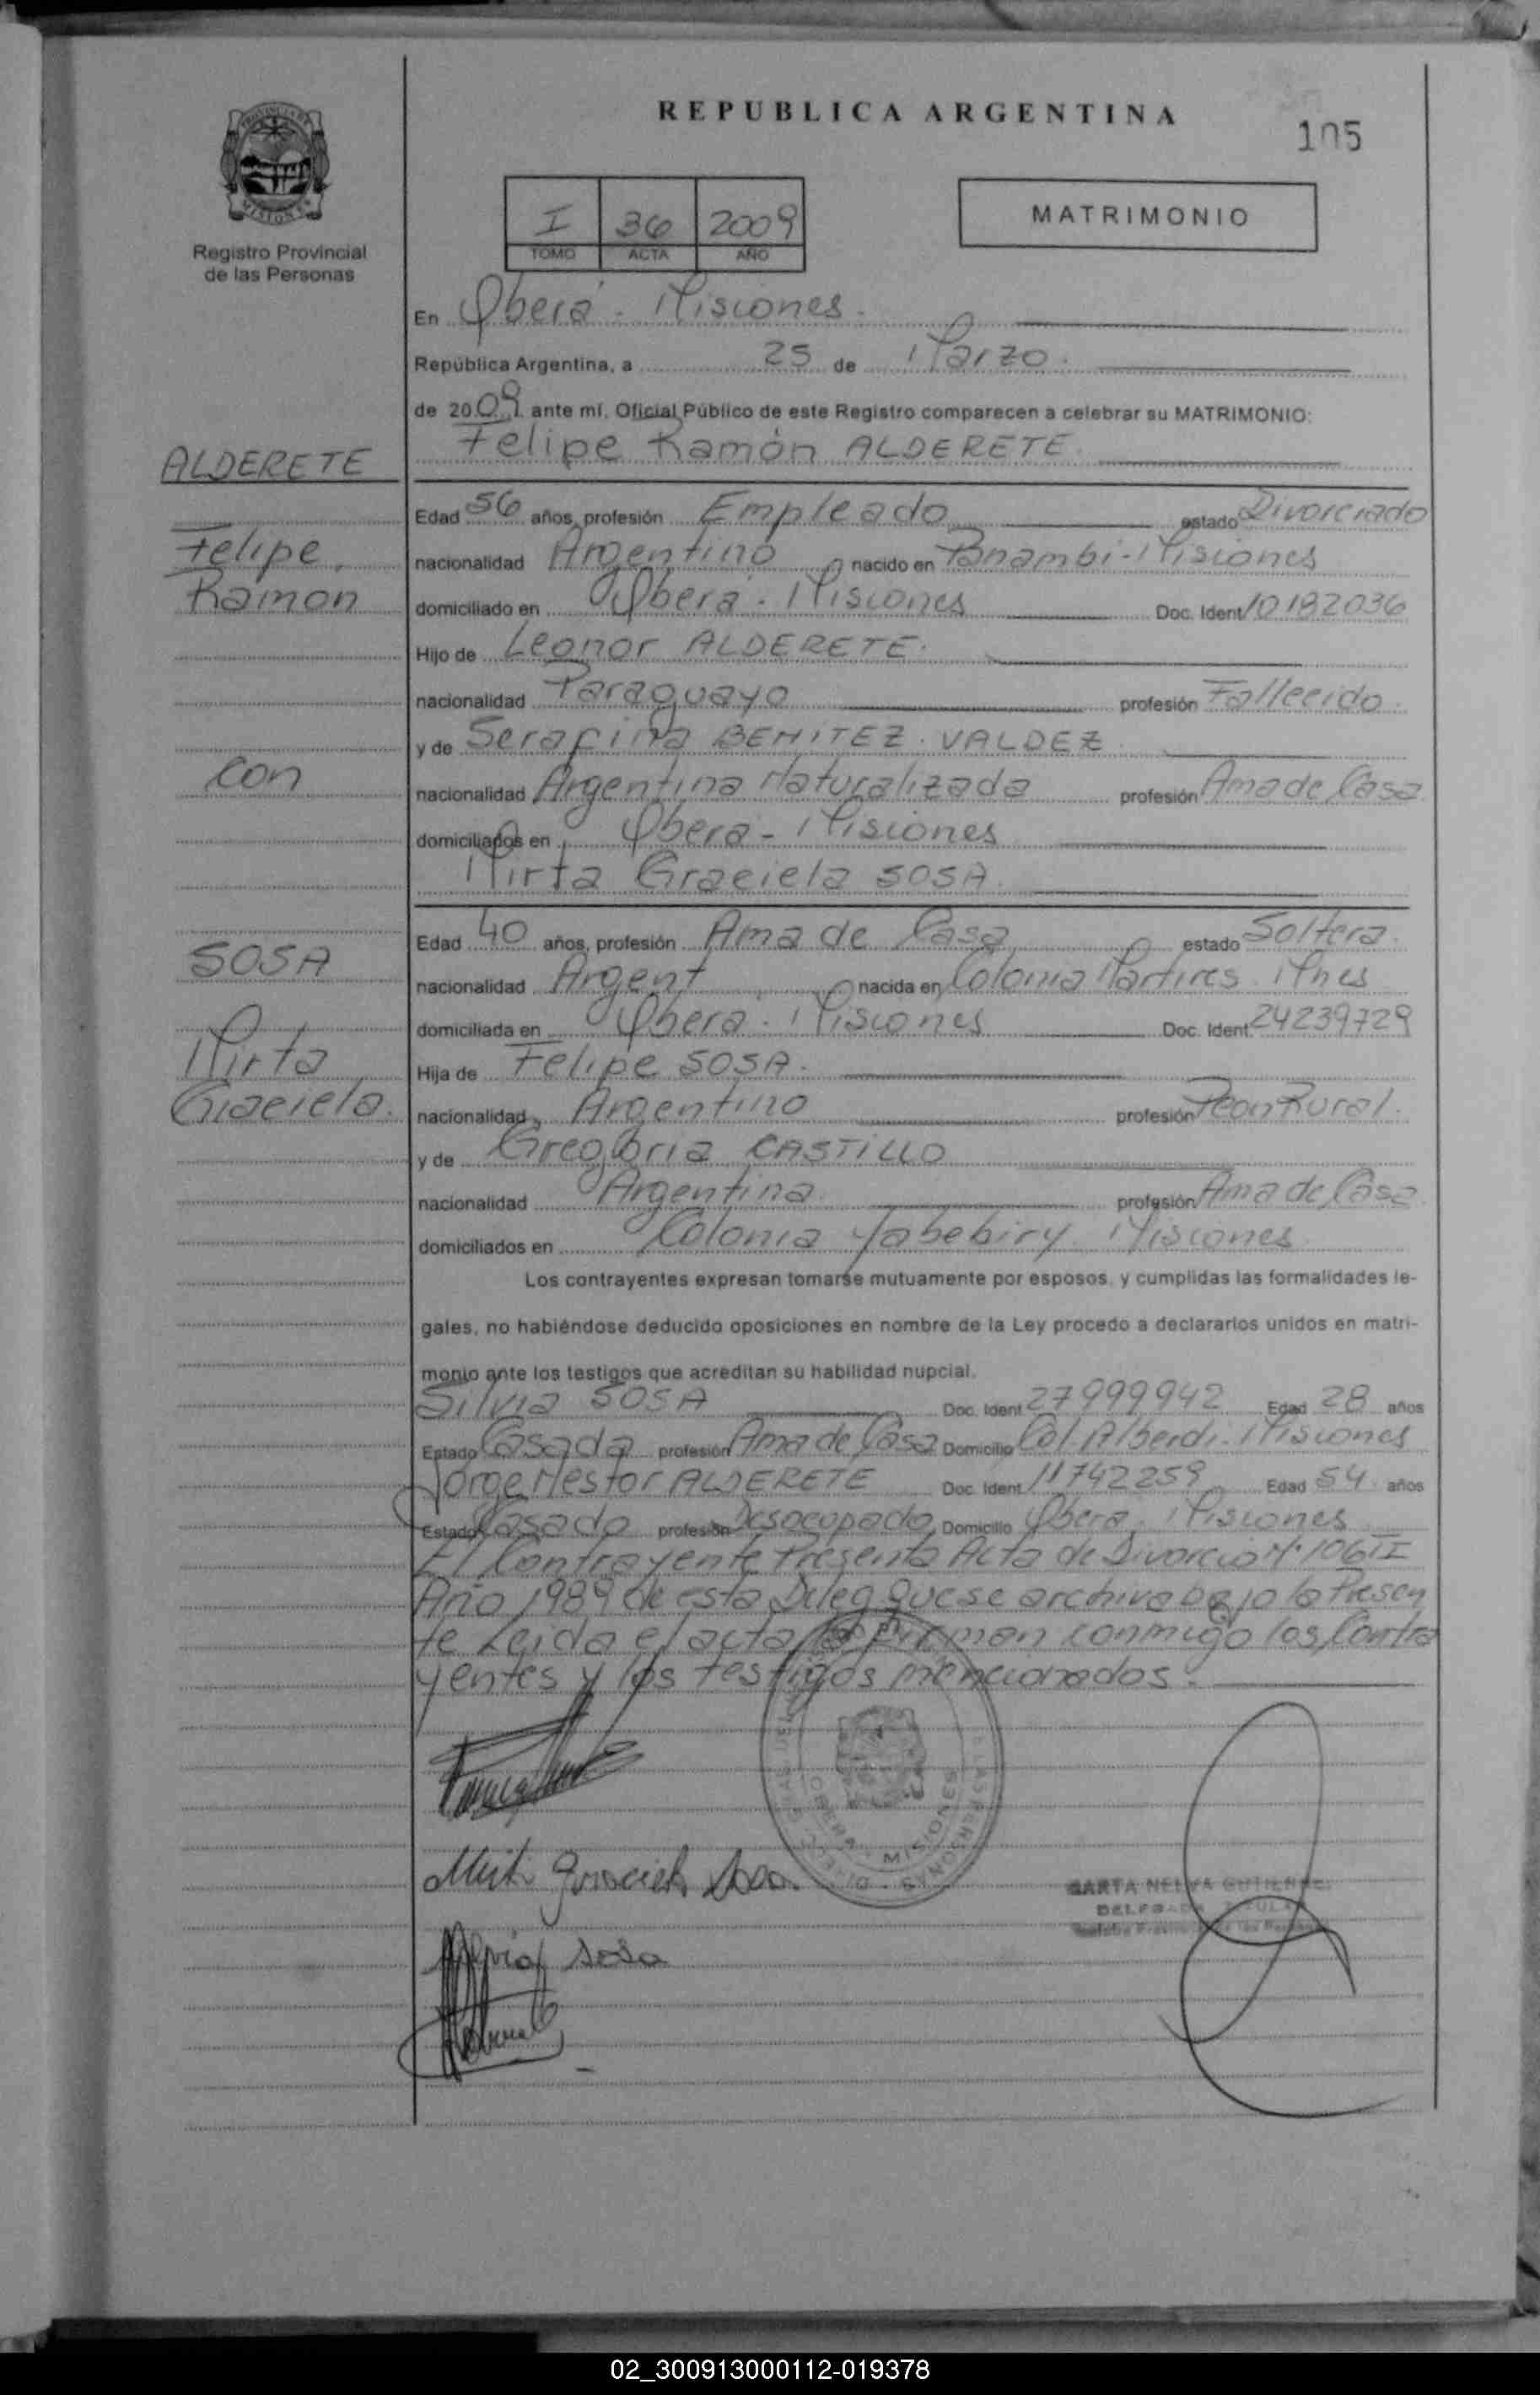 REPUBLICA ARGENTINA
105
PROVINCIA DE MISIONES
Registro Provincial
de las Personas
I 36 2009
TOMO ACTA AÑO
MATRIMONIO
En Oberá - Misiones.
República Argentina, a 25 de Marzo.
de 2009 ante mí, Oficial Público de este Registro comparecen a celebrar su MATRIMONIO:
Felipe Ramón ALDERETE.
ALDERETE
Felipe
Ramon
con
SOSA
Mirta
Graciela.
Edad 56 años, profesión Empleado estado Divorciado
nacionalidad Argentino nacido en Panambi - Misiones
domiciliado en Oberá - Misiones Doc. Ident 10182036
Hijo de Leonor ALDERETE.
nacionalidad Paraguayo profesión Fallecido.
y de Serafina BENITEZ VALDEZ
nacionalidad Argentina Naturalizada profesión Ama de Casa
domiciliados en Oberá - Misiones
Mirta Graciela SOSA.
Edad 40 años, profesión Ama de Casa estado Soltera.
nacionalidad Argent nacida en Colonia Martires. Mnes
domiciliada en Oberá - Misiones Doc. Ident. 24239729
Hija de Felipe SOSA.
nacionalidad Argentino profesión Peon Rural.
y de Gregoria CASTILLO
nacionalidad Argentina profesión Ama de Casa
domiciliados en Colonia Yabebiry Misiones
Los contrayentes expresan tomarse mutuamente por esposos, y cumplidas las formalidades le-
gales, no habiéndose deducido oposiciones en nombre de la Ley procedo a declararlos unidos en matri-
monio ante los testigos que acreditan su habilidad nupcial.
Silvia SOSA Doc. Ident 27999942 Edad 28 años
Estado Casada profesión Ama de Casa Domicilio Col. Alberdi. Misiones
Jorge Nestor ALDERETE Doc. Ident 11742259 Edad 54 años
Estado Casado profesión Desocupado Domicilio Oberá, Misiones
El Contrayente Presenta Acta de Divorcio Nº 106 II
Año 1989 de esta Deleg que se archiva bajo la Presen
te Leida el acta la firman conmigo los Contra
yentes y los testigos mencionados.
OBERA - MISIONES
Graciela Sosa
Silvia Sosa
MARTA NELVA GUTIERREZ
DELEGADA TITULAR
02_300913000112-019378